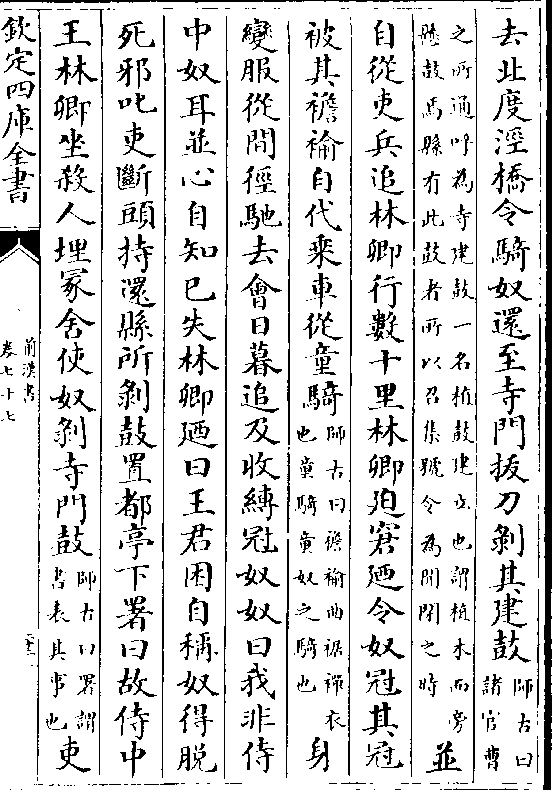 去北度涇橋令騎奴還至寺門拔刀剝其建鼓師古曰諸官曹
之所通呼為寺建鼓一名植鼓建立也謂植木而旁懸鼓焉縣有此鼓者所以召集號令為開閉之時並
自從吏兵追林卿行數十里林卿迫窘廼令奴冠其冠
被其襜褕自代乗車從童騎師古曰襜褕曲裾襌衣也童騎童奴之騎也身
變服從間徑馳去會日暮追及收縛冠奴奴曰我非侍
中奴耳並心自知已失林卿廼曰王君困自稱奴得脫
死邪叱吏斷頭持還縣所剝鼓置都亭下署曰故侍中
王林卿坐殺人埋冢舍使奴剝寺門鼓師古曰署謂書表其事也吏
欽定四庫全書
前漢書
卷七十七